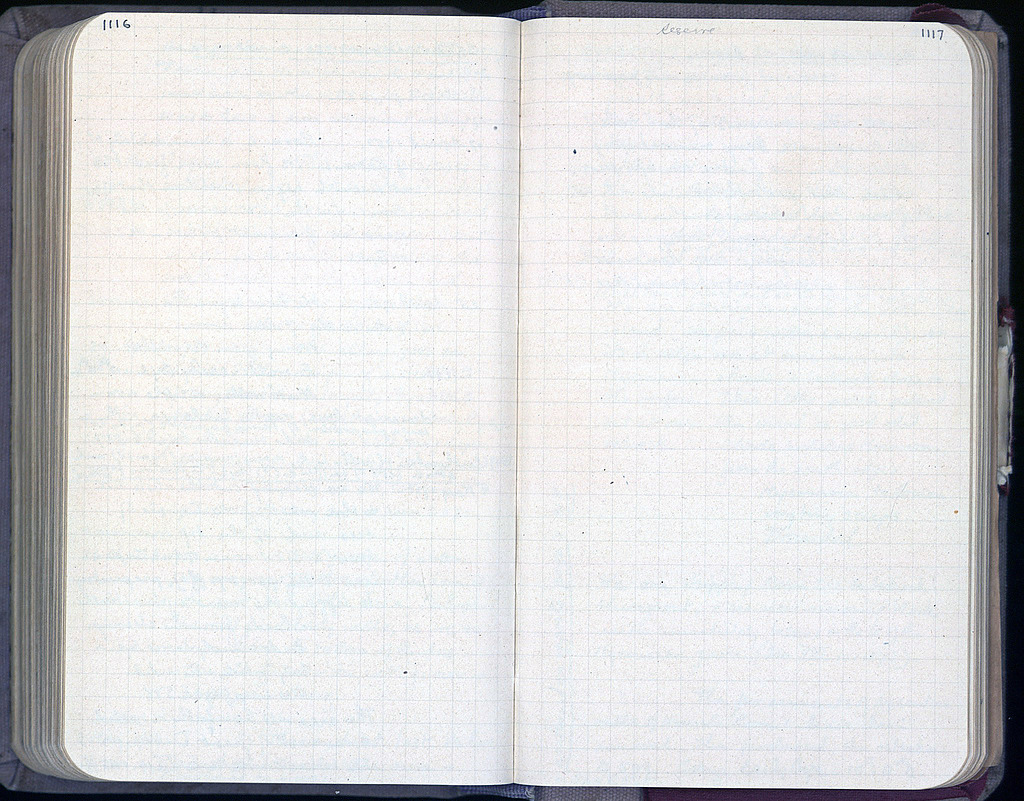 1116
Reserve
1117